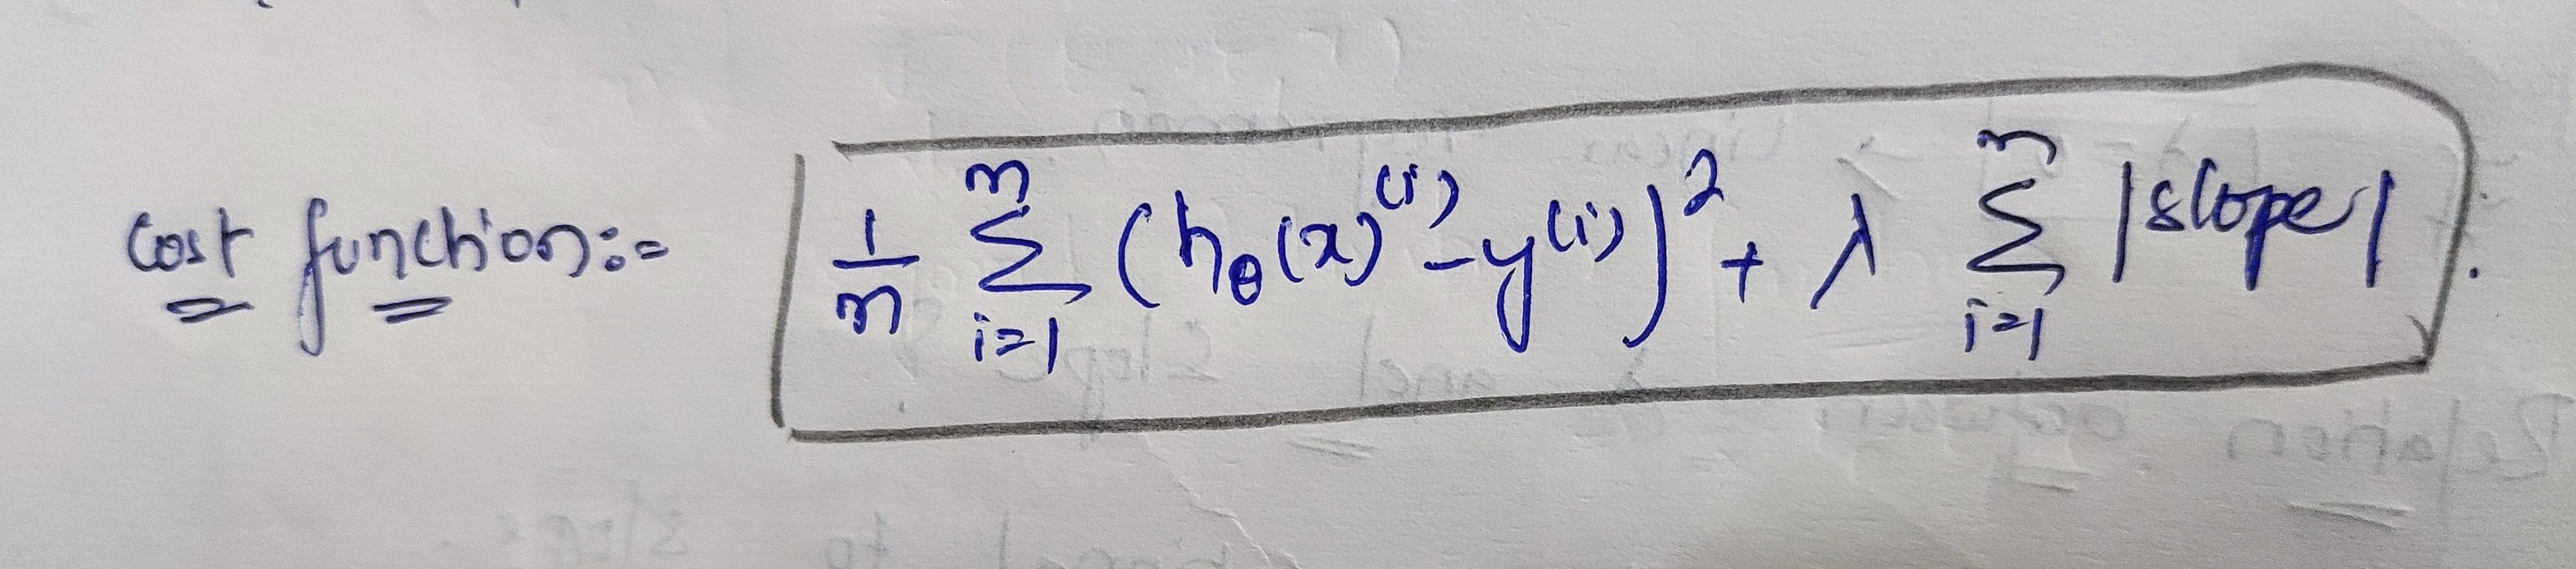 Cost function:- 1/m m Σ i=1 (hθ(x)^(i) - y^(i))^2 + λ m Σ i=1 |slope|.